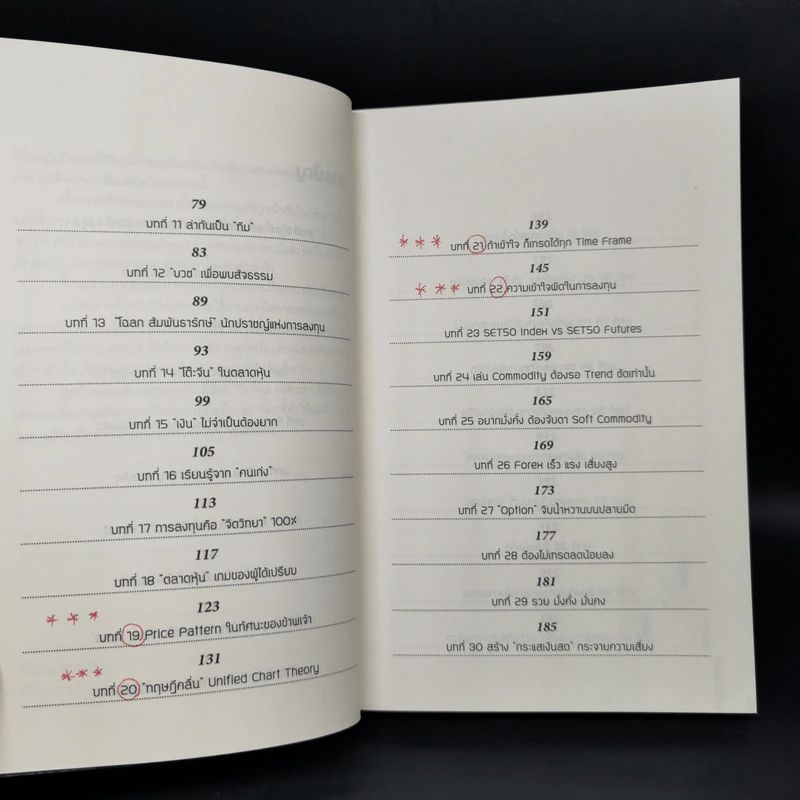 79
บทที่ 11 ล่ากันเป็น "ทีม"
83
บทที่ 12 "บวช" เพื่อพบสัจธรรม
89
บทที่ 13 "โฉลก สัมพันธารักษ์" นักปราชญ์แห่งการลงทุน
93
บทที่ 14 "โต๊ะจีน" ในตลาดหุ้น
99
บทที่ 15 "เงิน" ไม่จำเป็นต้องยาก
105
บทที่ 16 เรียนรู้จาก "คนเก่ง"
113
บทที่ 17 การลงทุนคือ "จิตวิทยา" 100%
117
บทที่ 18 "ตลาดหุ้น" เกมของผู้ได้เปรียบ
123
*** บทที่ 19 Price Pattern ในทัศนะของข้าพเจ้า
131
*** บทที่ 20 "ทฤษฎีคลื่น" Unified Chart Theory
139
*** บทที่ 21 ถ้าเข้าใจ ก็เทรดได้ทุก Time Frame
145
*** บทที่ 22 ความเข้าใจผิดในการลงทุน
151
บทที่ 23 SET50 Index vs SET50 Futures
159
บทที่ 24 เล่น Commodity ต้องรอ Trend ชัดเท่านั้น
165
บทที่ 25 อยากมั่งคั่ง ต้องจับตา Soft Commodity
169
บทที่ 26 Forex เร็ว แรง เสี่ยงสูง
173
บทที่ 27 "Option" จิบน้ำหวานบนปลายมีด
177
บทที่ 28 ต้องไม่เทรดลดน้อยลง
181
บทที่ 29 รวย มั่งคั่ง มั่นคง
185
บทที่ 30 สร้าง "กระแสเงินสด" กระจายความเสี่ยง